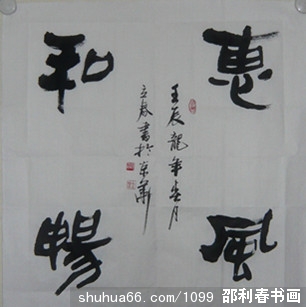 惠風
和暢
壬辰龍年春月
立春書於京華
shuhua66.com/1099 邵利春书画